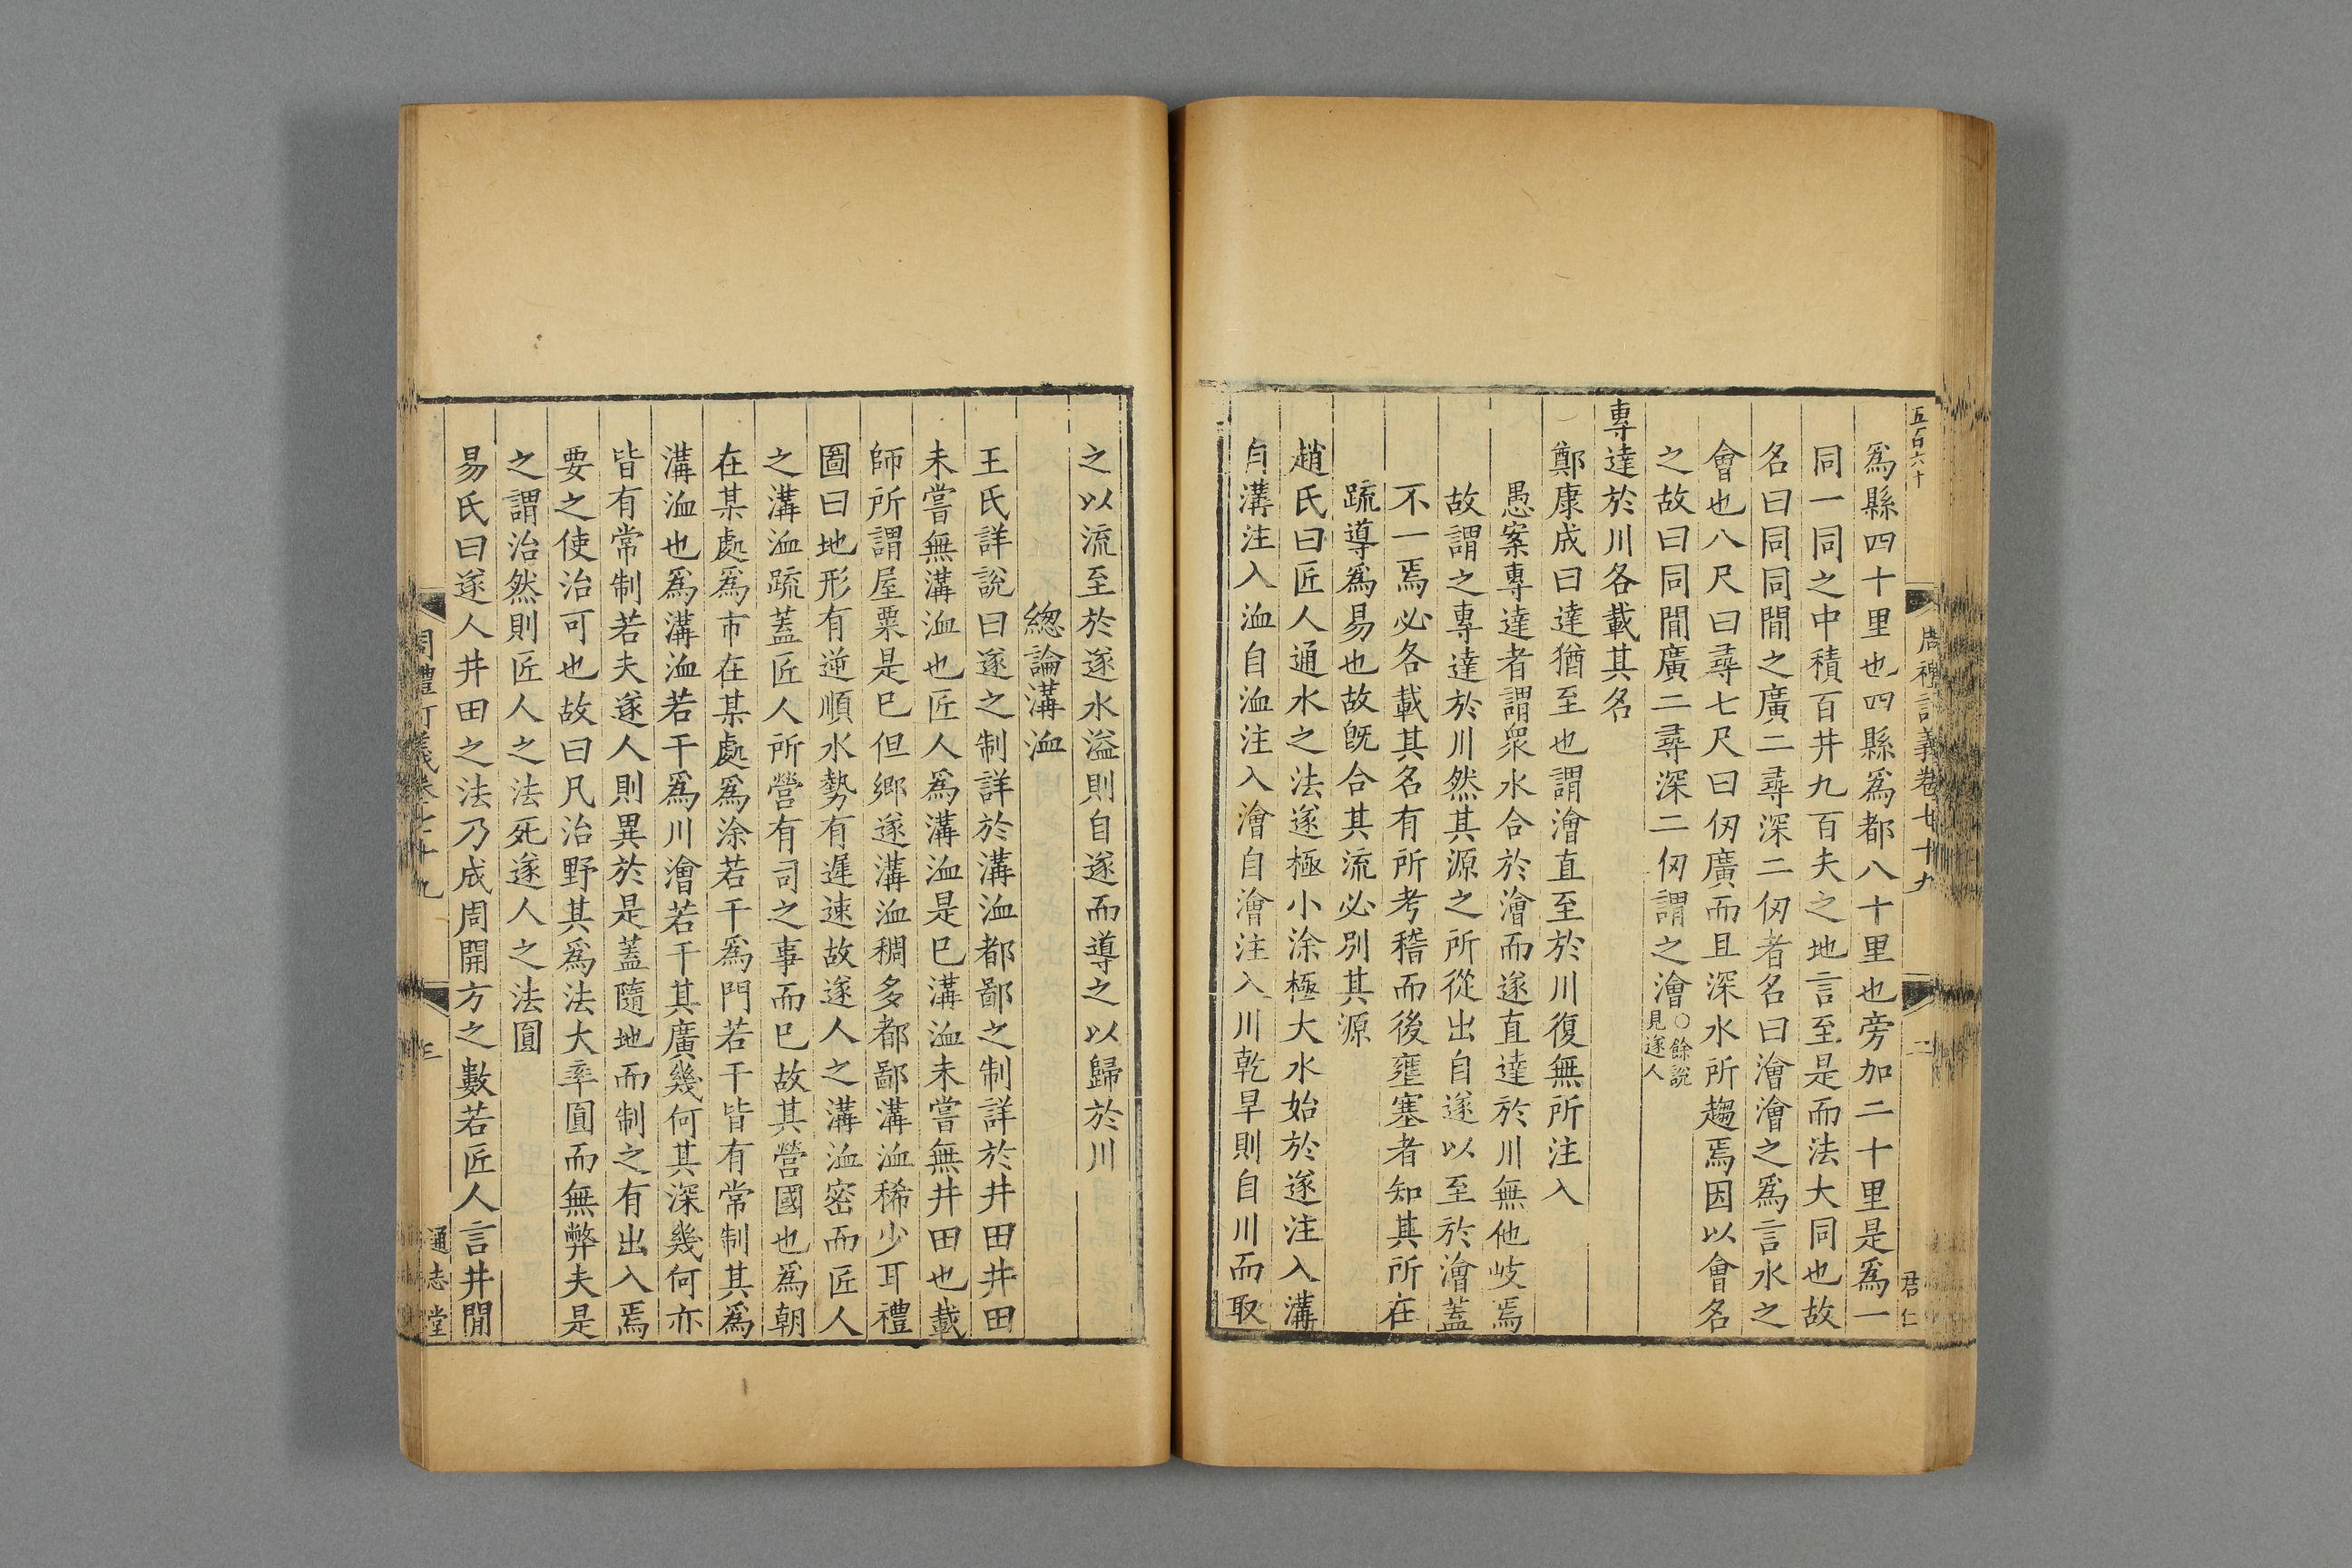 五百六十
周禮訂義卷七十九
二
君仁
爲縣四十里也四縣爲都八十里也旁加二十里是爲一
同一同之中積百井九百夫之地言至是而法大同也故
名曰同同閒之廣二尋深二仞者名曰澮澮之爲言水之
會也八尺曰尋七尺曰仞廣而且深水所趨焉因以會名
之故曰同閒廣二尋深二仞謂之澮○餘說見遂人
專達於川各載其名
鄭康成曰達猶至也謂澮直至於川復無所注入
愚案專達者謂衆水合於澮而遂直達於川無他岐焉
故謂之專達於川然其源之所從出自遂以至於澮蓋
不一焉必各載其名有所考稽而後壅塞者知其所在
䟽導爲易也故旣合其流必別其源
趙氏曰匠人通水之法遂極小涂極大水始於遂注入溝
自溝注入洫自洫注入澮自澮注入川乾旱則自川而取
之以流至於遂水溢則自遂而導之以歸於川
緫論溝洫
王氏詳說曰遂之制詳於溝洫都鄙之制詳於井田井田
未嘗無溝洫也匠人爲溝洫是巳溝洫未嘗無井田也載
師所謂屋粟是巳但鄉遂溝洫稠多都鄙溝洫稀少耳禮
圖曰地形有逆順水勢有遲速故遂人之溝洫密而匠人
之溝洫䟽蓋匠人所營有司之事而巳故其營國也爲朝
在某處爲市在某處爲涂若干爲門若干皆有常制其爲
溝洫也爲溝洫若干爲川澮若干其廣幾何其深幾何亦
皆有常制若夫遂人則異於是蓋隨地而制之有出入焉
要之使治可也故曰凡治野其爲法大率圓而無弊夫是
之謂治然則匠人之法死遂人之法圓
易氏曰遂人井田之法乃成周開方之數若匠人言井閒
周禮訂義卷七十九
三
通志堂